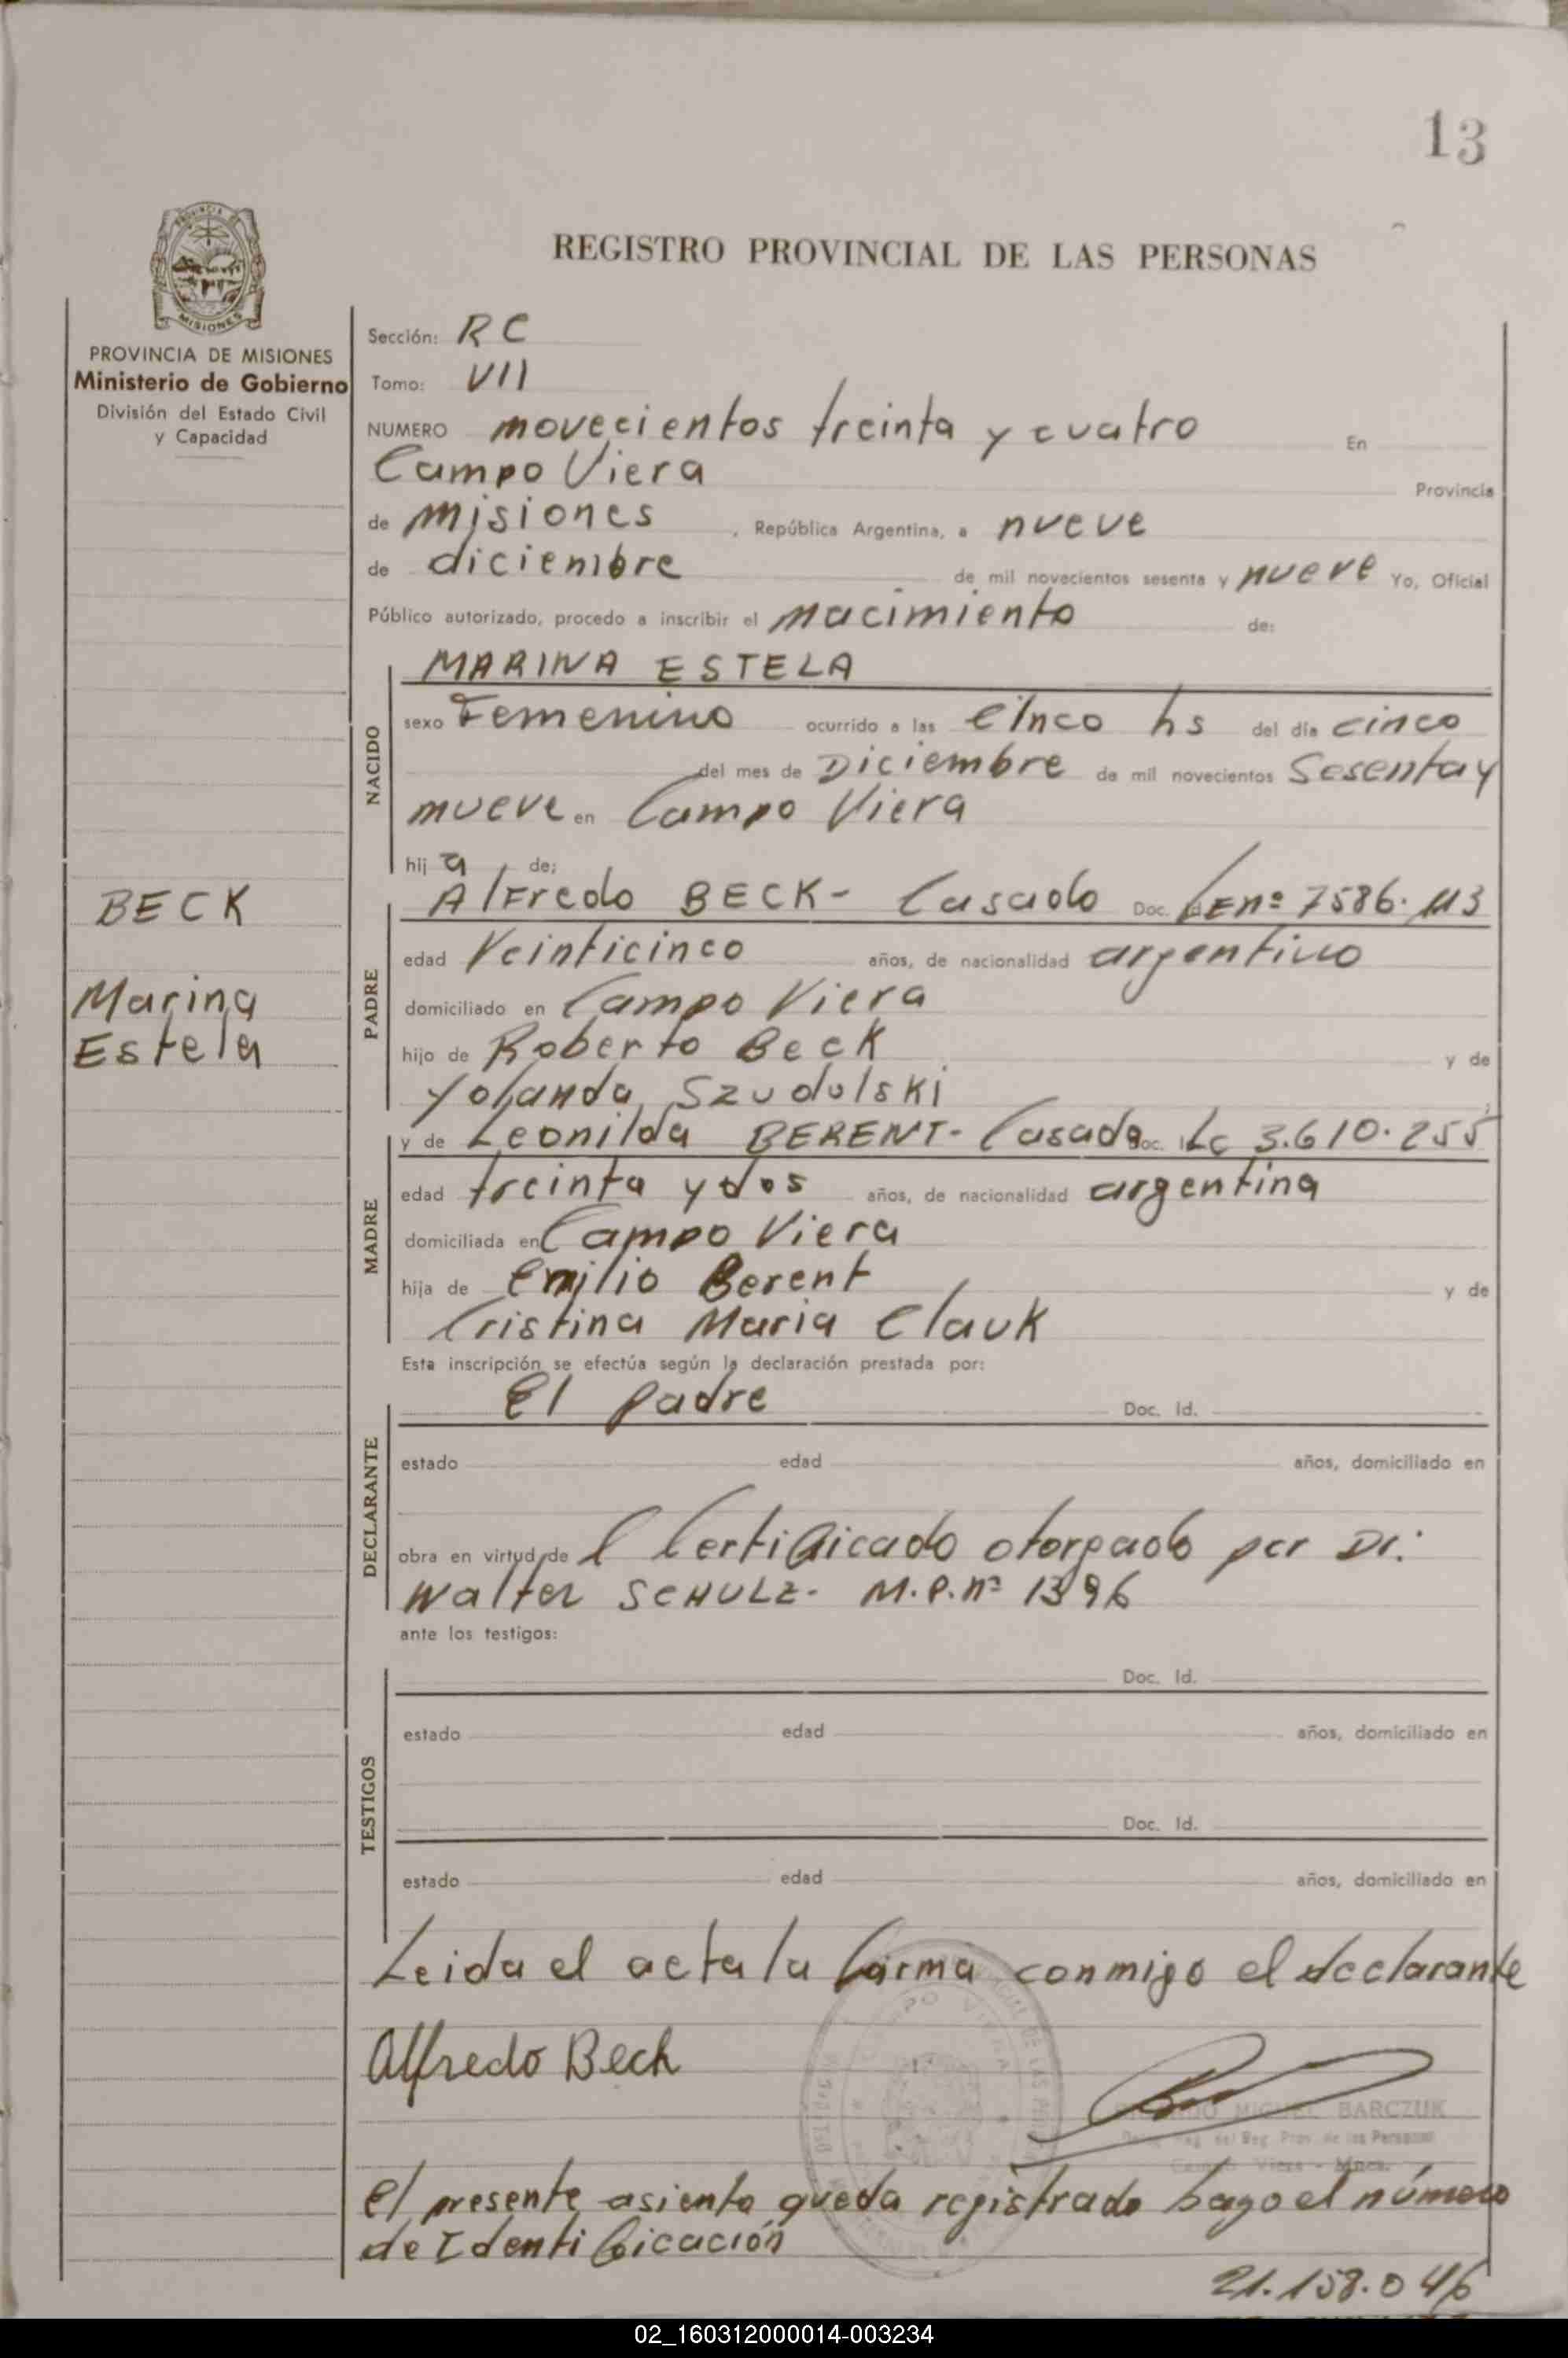 13
REGISTRO PROVINCIAL DE LAS PERSONAS
MISIONES
PROVINCIA DE MISIONES
Ministerio de Gobierno
División del Estado Civil
y Capacidad
Sección: RC
Tomo: VII
NUMERO movecientos treinta y cuatro En
Campo Viera Provincia
de misiones, República Argentina, a nueve
de diciembre de mil novecientos sesenta y nueve Yo, Oficial
Público autorizado, procedo a inscribir el nacimiento de:
MARINA ESTELA
NACIDO
sexo Femenino ocurrido a las cinco hs del día cinco
del mes de Diciembre de mil novecientos Sesenta y
nueve en Campo Viera
hij a de:
BECK
Marina
Estela
PADRE
Alfredo BECK- Casado Doc. LE nº 7586.113
edad Veinticinco años, de nacionalidad argentino
domiciliado en Campo Viera
hijo de Roberto Beck y de
Yolanda Szudulski
MADRE
y de Leonilda BERENT- Casada Doc. Lc 3.610.255
edad treinta y dos años, de nacionalidad argentina
domiciliada en Campo Viera
hija de Emilio Berent y de
Cristina Maria Clauk
Esta inscripción se efectúa según la declaración prestada por:
DECLARANTE
El padre Doc. Id.
estado edad años, domiciliado en
obra en virtud de l Certificado otorgado por Dr:
Walter SCHULZ- M.P.nº 1396
ante los testigos:
TESTIGOS
Doc. Id.
estado edad años, domiciliado en
Doc. Id.
estado edad años, domiciliado en
Leida el acta la firma conmigo el declarante
Alfredo Beck
MIGUEL BARCZUK
el presente asiento queda registrado bago el número
de Identificación
21.158.046
02_160312000014-003234